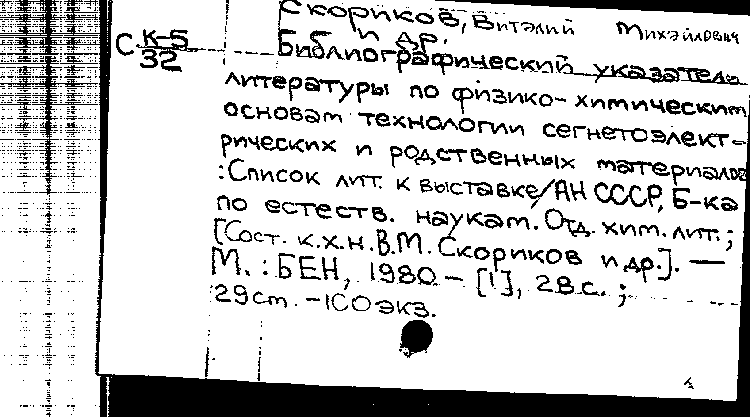 Скориков, Виталий Михайлович
и др.
С К-5
32
Библиографический указатель
литературы по физико-химическим
основам технологии сегнетоэлект-
рических и родственных материалов
:Список лит. к выставке/АН СССР, Б-ка
по естеств. наукам. Отд. хим. лит.;
[Сост. к.х.н. В.М. Скориков и др.]. —
М.: БЕН, 1980. - [1], 28 с.;
29 cm. - 100 экз.